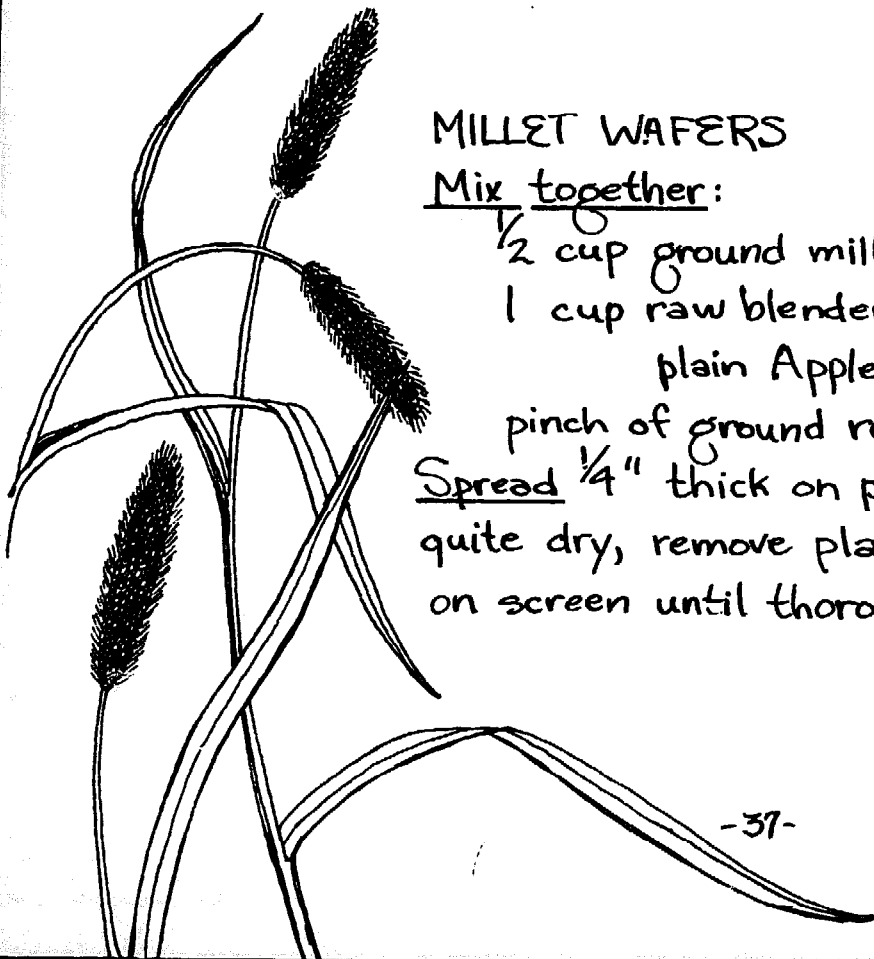 MILLET WAFERS
Mix together:
1/2 cup ground mill
1 cup raw blende
plain Apple
pinch of ground
Spread 1/4" thick on p
quite dry, remove pla
on screen until thoro
-37-